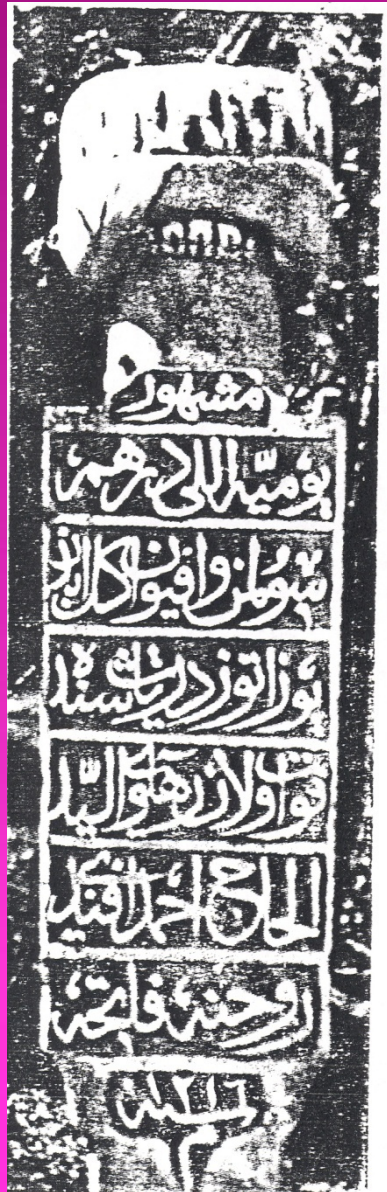 مشهور
يوميّه اللى درهم
سُولمن و افيون اكل ايدن
يوز اتوز درت ياشنده
فوت اولان رهاوى السّيد
الحاج احمد افندى
روحنه فاتحه
سنه ١٢١٦